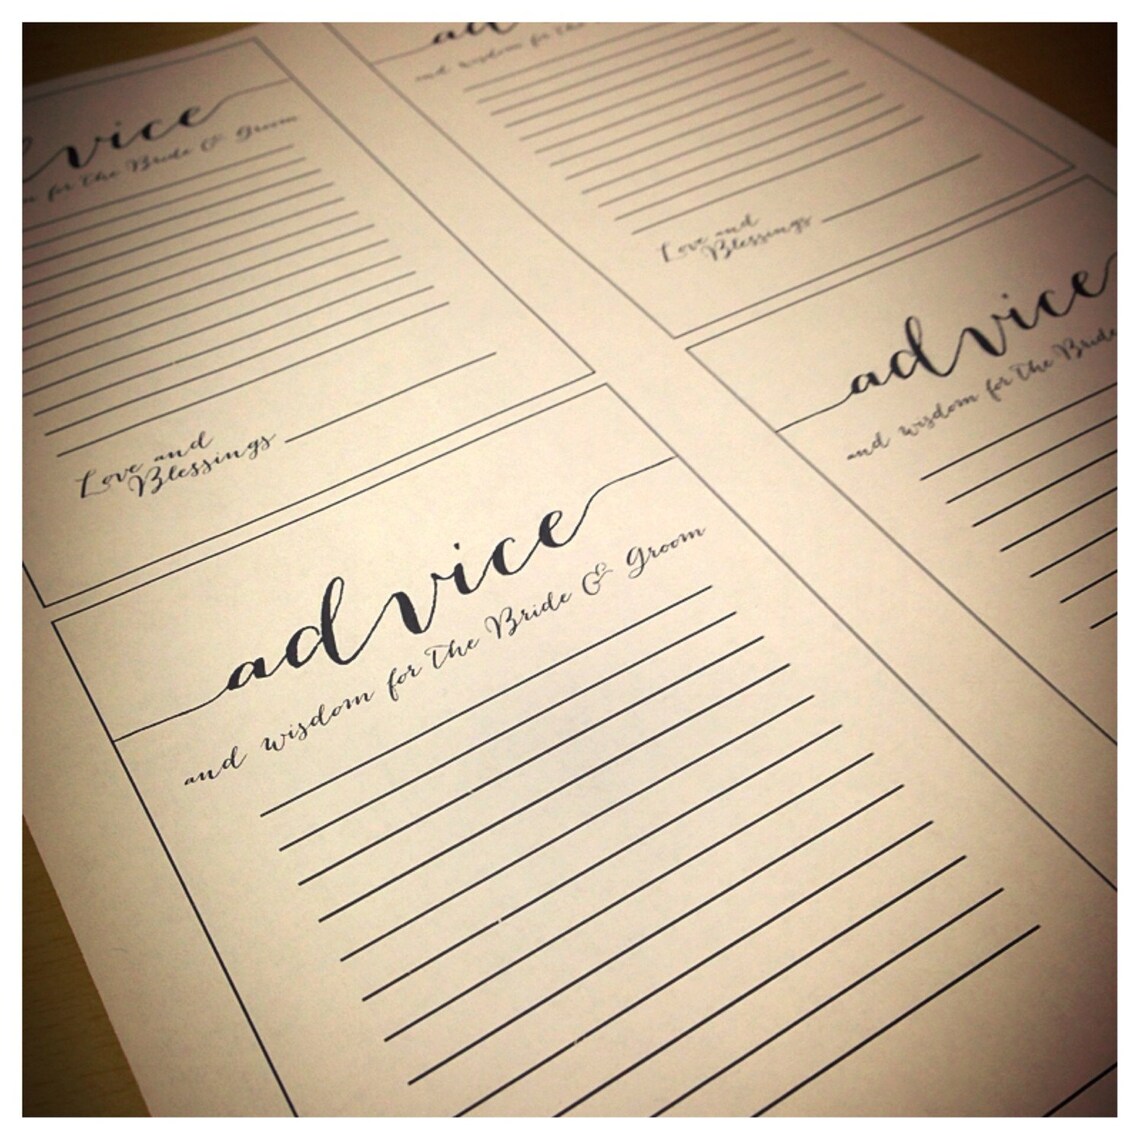 vice
for The Bride & Groom
Love and
Blessings
ad
and wisdom for the
Love and
Blessings
advice
and wisdom for The Bride & Groom
advice
and wisdom for The Bride